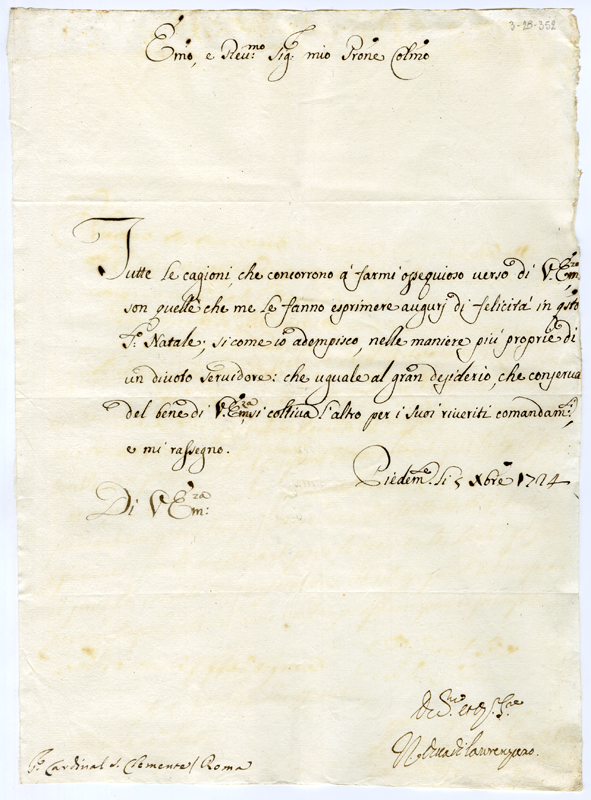 3-28-352
Emo, e Revmo. Sig. mio Prone Colmo
Tutte le cagioni, che concorrono a' farmi ossequioso verso di V. Emza.
son quelle che me le fanno esprimere augurj di felicità in qsto
So. Natale; sicome io adempisco, nelle maniere più proprie di
un divoto servidore: che uguale al gran desiderio, che conserva
del bene di V. Emza. si coltiva l'altro per i suoi riveriti comandamti.
e mi rassegno.
Piedemte. li 5 Xbre 1724
Di V Emza:
Il Duca di Laurenzano.
Sr. Cardinal S. Clemente / Roma